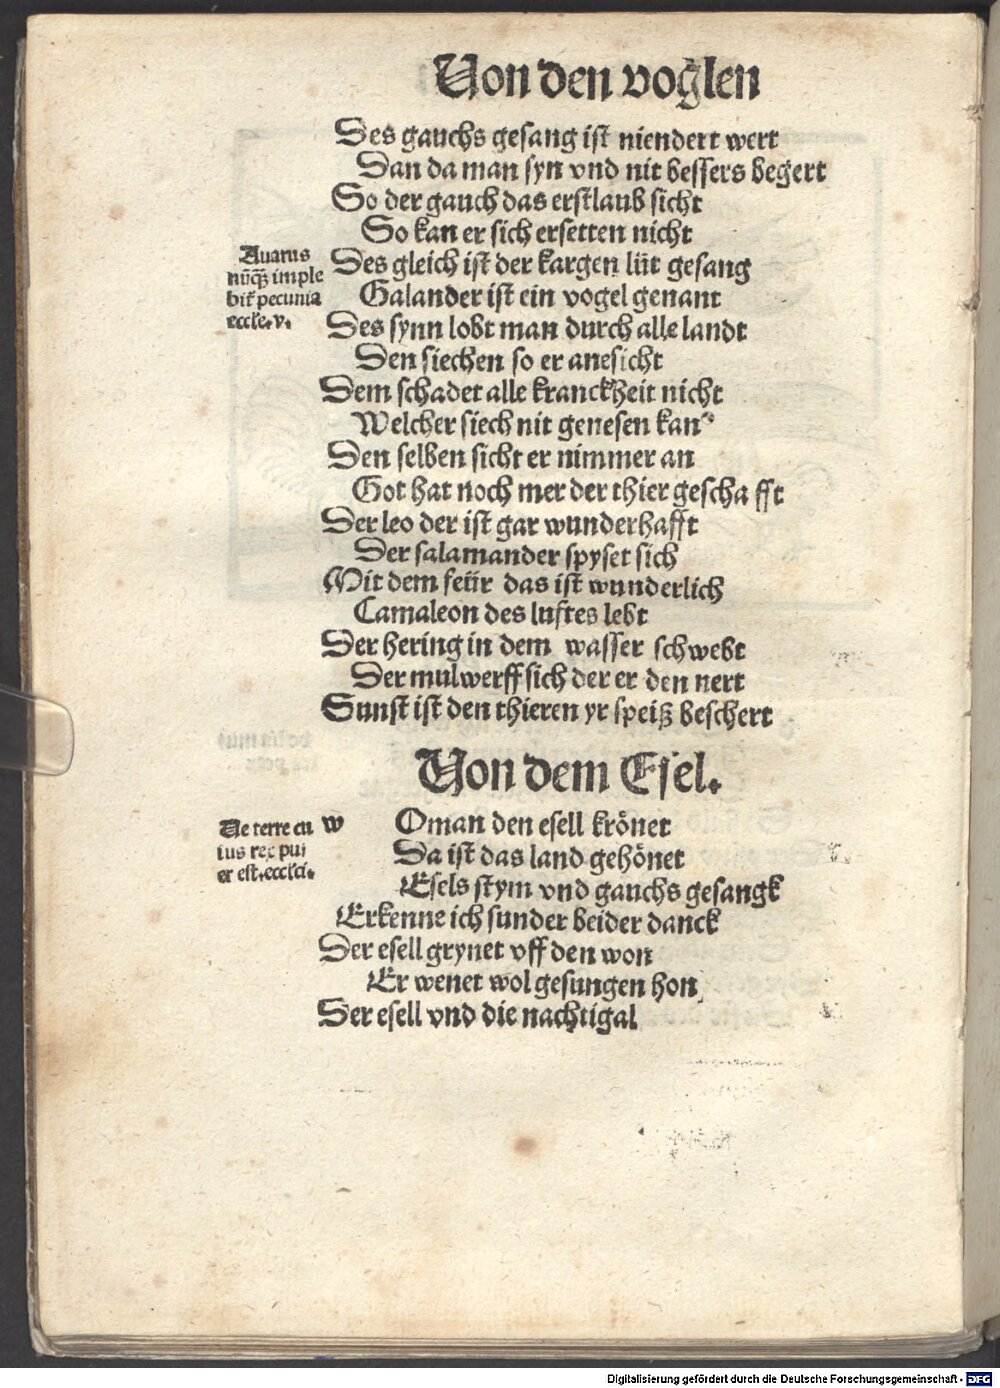 Von den voglen
Des gauchs gesang ist niendert wert
Dan da man syn vnd nit bessers begert
So der gauch das erstlaub sicht
So kan er sich ersetten nicht
Auarus
nūq̄ʒ imple
bit̄ pecunia
eccle. v.
Des gleich ist der kargen lüt gesang
Galander ist ein vogel genant
Des synn lobt man durch alle landt
Den siechen so er anesicht
Dem schadet alle kranckheit nicht
Welcher siech nit genesen kan
Den selben sicht er nimmer an
Got hat noch mer der thier geschafft
Der leo der ist gar wunderhafft
Der salamander spyset sich
Mit dem feür das ist wunderlich
Camaleon des luftes lebt
Der hering in dem wasser schwebt
Der mulwerff sich der er den nert
Sunst ist den thieren yr speiß beschert
Von dem Esel.
Ve terre cu
ius rex pu
er est. eccle.
w Oman den esell krönet
Da ist das land gehönet
Esels stym vnd gauchs gesangk
Erkenne ich sunder beider danck
Der esell grynet vff den won
Er wenet wol gesungen hon
Der esell vnd die nachtigal
Digitalisierung gefördert durch die Deutsche Forschungsgemeinschaft - DFG